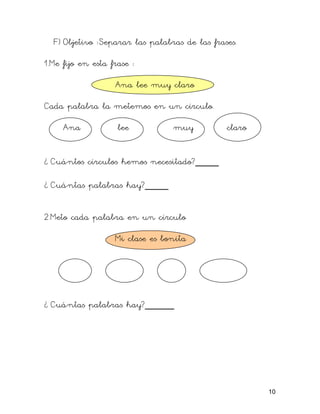 F) Objetivo :Separar las palabras de las frases.
1.Me fijo en esta frase :
Ana lee muy claro
Cada palabra la metemos en un círculo.
Ana lee muy claro
¿ Cuántos círculos hemos necesitado?_____
¿ Cuántas palabras hay?_____
2.Meto cada palabra en un círculo
Mi clase es bonita
¿ Cuántas palabras hay?______
10